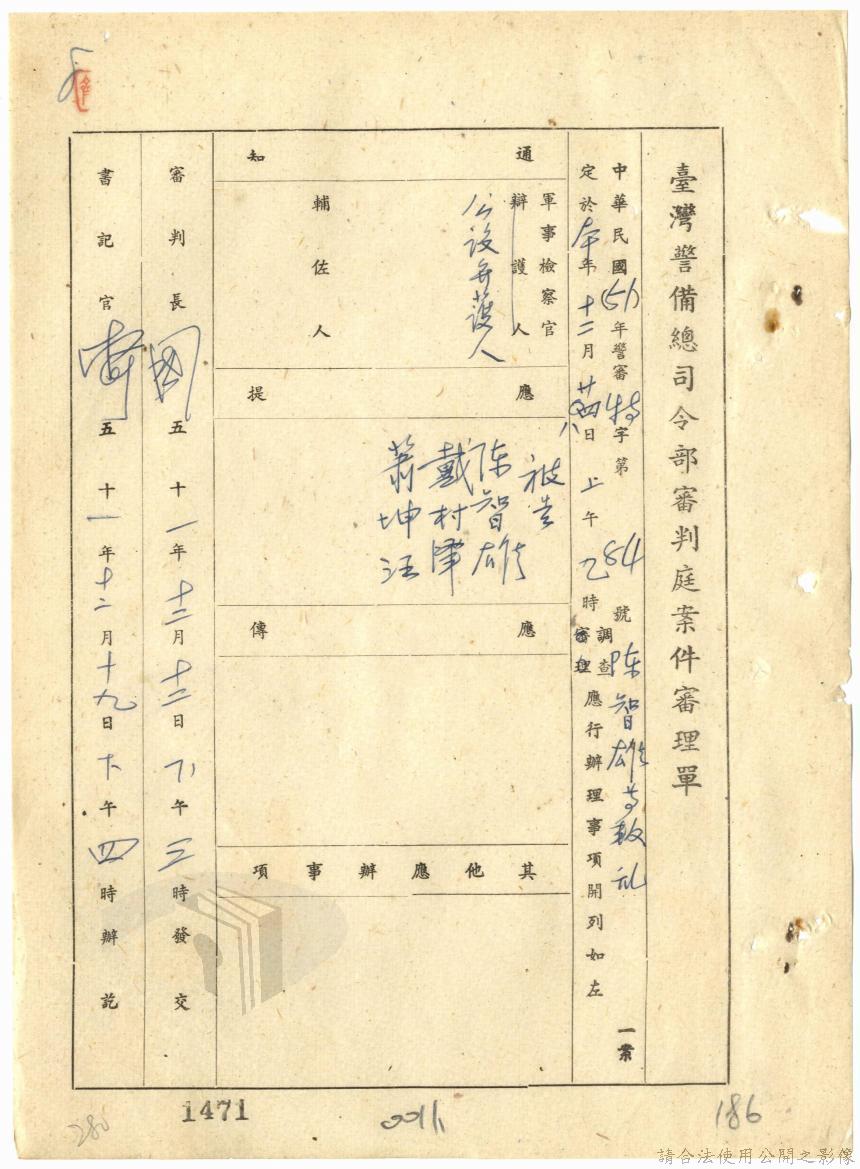 臺灣警備總司令部審判庭案件審理單
中華民國(51)年警審特字第84號陳智雄等叛乱一案
定於本年十二月廿八日上午九時調查審理應行辦理事項開列如左
通知
軍事檢察官
辯護人
公設弁護人
輔佐人
應提
被告
陈智雄
戴村澤
蕭坤汪
應傳
其他應辦事項
審判長
五十一年十二月十二日下午三時發交
書記官
五十一年十二月十九日下午四時辦訖
280
1471
0011
186
請合法使用公開之影像